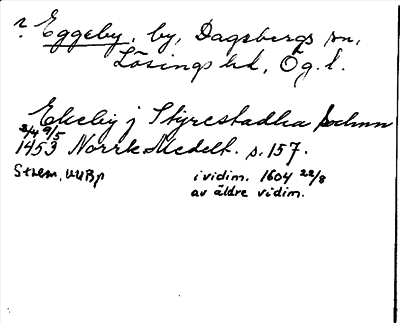 ? Eggeby, by, Dagsbergs sn,
Lösings hd, Ög. l.
Ekeby j Styrestadha sochnn
2/4 9/5
1453 Norrk Medelt. s. 157.
Strem, UUBp
i vidim. 1604 22/8
av äldre vidim.